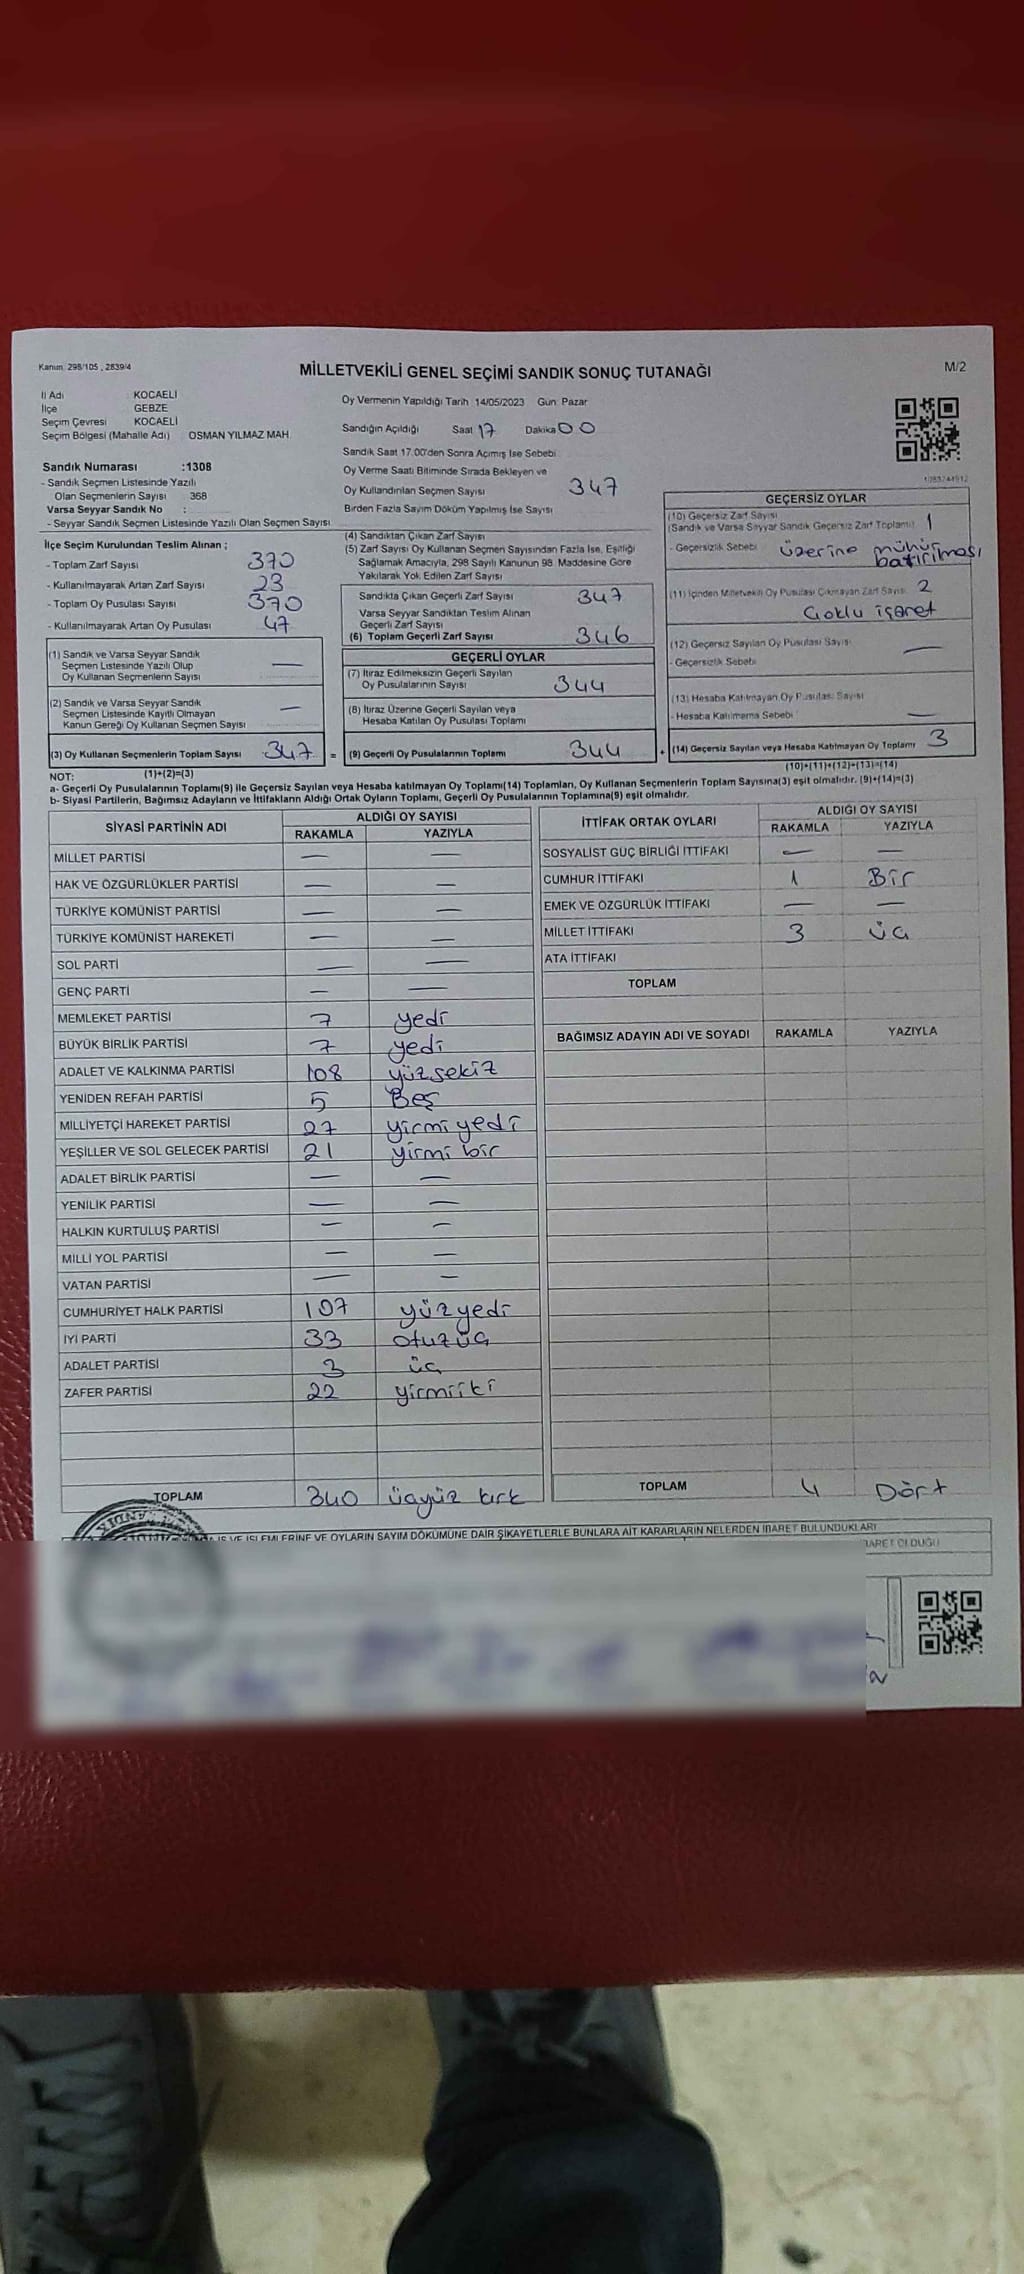 Kanun: 298/105 , 2839/4
MİLLETVEKİLİ GENEL SEÇİMİ SANDIK SONUÇ TUTANAĞI
M/2
İl Adı : KOCAELİ
İlçe : GEBZE
Seçim Çevresi : KOCAELİ
Seçim Bölgesi (Mahalle Adı) : OSMAN YILMAZ MAH.
Sandık Numarası :1308
- Sandık Seçmen Listesinde Yazılı
Olan Seçmenlerin Sayısı : 368
Varsa Seyyar Sandık No :
- Seyyar Sandık Seçmen Listesinde Yazılı Olan Seçmen Sayısı
Oy Vermenin Yapıldığı Tarih 14/05/2023 Gün: Pazar
Sandığın Açıldığı Saat 17 Dakika 00
Sandık Saat 17.00'den Sonra Açımış İse Sebebi
Oy Verme Saati Bitiminde Sırada Bekleyen ve
Oy Kullandırılan Seçmen Sayısı 347
Birden Fazla Sayım Döküm Yapılmış İse Sayısı
İlçe Seçim Kurulundan Teslim Alınan ;
- Toplam Zarf Sayısı 370
- Kullanılmayarak Artan Zarf Sayısı 23
- Toplam Oy Pusulası Sayısı 370
- Kullanılmayarak Artan Oy Pusulası 47
(1) Sandık ve Varsa Seyyar Sandık
Seçmen Listesinde Yazılı Olup
Oy Kullanan Seçmenlerin Sayısı —
(2) Sandık ve Varsa Seyyar Sandık
Seçmen Listesinde Kayıtlı Olmayan
Kanun Gereği Oy Kullanan Seçmen Sayısı —
(3) Oy Kullanan Seçmenlerin Toplam Sayısı 347 =
(4) Sandıktan Çıkan Zarf Sayısı
(5) Zarf Sayısı Oy Kullanan Seçmen Sayısından Fazla İse, Eşitliği
Sağlamak Amacıyla, 298 Sayılı Kanunun 98. Maddesine Göre
Yakılarak Yok Edilen Zarf Sayısı
Sandıkta Çıkan Geçerli Zarf Sayısı 347
Varsa Seyyar Sandıktan Teslim Alınan
Geçerli Zarf Sayısı
(6) Toplam Geçerli Zarf Sayısı 346
GEÇERLİ OYLAR
(7) İtiraz Edilmeksizin Geçerli Sayılan
Oy Pusulalarının Sayısı 344
(8) İtiraz Üzerine Geçerli Sayılan veya
Hesaba Katılan Oy Pusulası Toplamı
(9) Geçerli Oy Pusulalarının Toplamı 344 +
GEÇERSİZ OYLAR
(10) Geçersiz Zarf Sayısı
(Sandık ve Varsa Seyyar Sandık Geçersiz Zarf Toplamı) 1
- Geçersizlik Sebebi üzerine mühür
batırılması
(11) İçinden Milletvekili Oy Pusulası Çıkmayan Zarf Sayısı 2
Çoklu işaret
(12) Geçersiz Sayılan Oy Pusulası Sayısı —
- Geçersizlik Sebebi
(13) Hesaba Katılmayan Oy Pusulası Sayısı
- Hesaba Katılmama Sebebi —
(14) Geçersiz Sayılan veya Hesaba Katılmayan Oy Toplamı 3
NOT: (1)+(2)=(3)
(10)+(11)+(12)+(13)=(14)
a- Geçerli Oy Pusulalarının Toplamı(9) ile Geçersiz Sayılan veya Hesaba katılmayan Oy Toplamı(14) Toplamları, Oy Kullanan Seçmenlerin Toplam Sayısına(3) eşit olmalıdır. (9)+(14)=(3)
b- Siyasi Partilerin, Bağımsız Adayların ve İttifakların Aldığı Ortak Oyların Toplamı, Geçerli Oy Pusulalarının Toplamına(9) eşit olmalıdır.
SİYASİ PARTİNİN ADI ALDIĞI OY SAYISI
RAKAMLA YAZIYLA
MİLLET PARTİSİ — —
HAK VE ÖZGÜRLÜKLER PARTİSİ — —
TÜRKİYE KOMÜNİST PARTİSİ — —
TÜRKİYE KOMÜNİST HAREKETİ — —
SOL PARTİ — —
GENÇ PARTİ — —
MEMLEKET PARTİSİ 7 yedi
BÜYÜK BİRLİK PARTİSİ 7 yedi
ADALET VE KALKINMA PARTİSİ 108 yüzsekiz
YENİDEN REFAH PARTİSİ 5 Beş
MİLLİYETÇİ HAREKET PARTİSİ 27 yirmi yedi
YEŞİLLER VE SOL GELECEK PARTİSİ 21 yirmi bir
ADALET BİRLİK PARTİSİ — —
YENİLİK PARTİSİ — —
HALKIN KURTULUŞ PARTİSİ — —
MİLLİ YOL PARTİSİ — —
VATAN PARTİSİ — —
CUMHURİYET HALK PARTİSİ 107 yüzyedi
İYİ PARTİ 33 otuzüç
ADALET PARTİSİ 3 üç
ZAFER PARTİSİ 22 yirmiiki
TOPLAM 340 üçyüz kırk
İTTİFAK ORTAK OYLARI ALDIĞI OY SAYISI
RAKAMLA YAZIYLA
SOSYALİST GÜÇ BİRLİĞİ İTTİFAKI — —
CUMHUR İTTİFAKI 1 Bir
EMEK VE ÖZGÜRLÜK İTTİFAKI — —
MİLLET İTTİFAKI 3 üç
ATA İTTİFAKI
TOPLAM
BAĞIMSIZ ADAYIN ADI VE SOYADI RAKAMLA YAZIYLA
TOPLAM 4 Dört
İŞ VE İŞLEMLERİNE VE OYLARIN SAYIM DÖKÜMÜNE DAİR ŞİKAYETLERLE BUNLARA AİT KARARLARIN NELERDEN İBARET BULUNDUKLARI
İBARET OLDUĞU